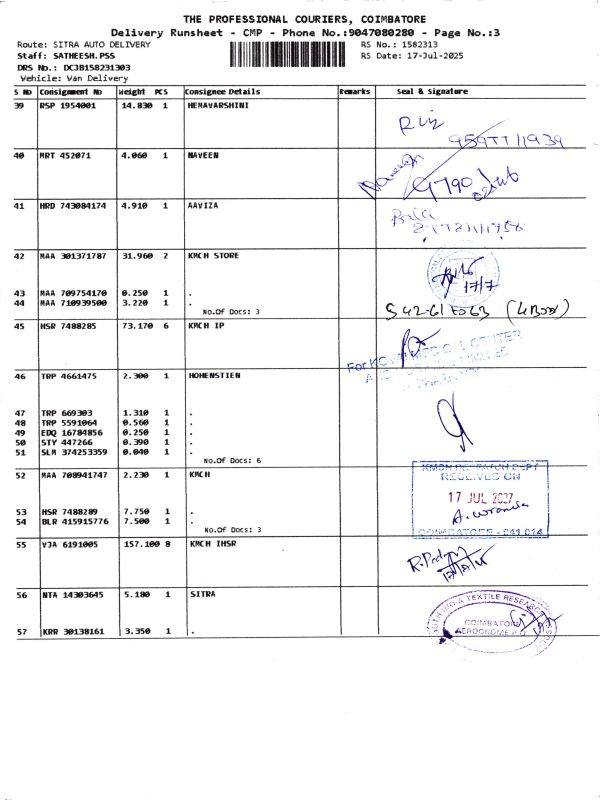 THE PROFESSIONAL COURIERS, COIMBATORE
Delivery Runsheet - CMP - Phone No.:9047080280 - Page No.:3
Route: SITRA AUTO DELIVERY RS No.: 1582313
Staff: SATHEESH.PSS RS Date: 17-Jul-2025
DRS No.: DCJB158231303
Vehicle: Van Delivery
S No Consignment No Weight PCS Consignee Details Remarks Seal & Signature
39 RSP 1954001 14.830 1 HEMAVARSHINI
40 MRT 452071 4.060 1 NAVEEN
Naveen
41 HRD 743084174 4.910 1 AAVIZA
42 MAA 301371787 31.960 2 KMCH STORE
17/7
43 MAA 709754170 0.250 1 .
44 MAA 710939500 3.220 1 .
No.Of Docs: 3
45 HSR 7488285 73.170 6 KMCH IP
For
46 TRP 4661475 2.300 1 HOHENSTIEN
47 TRP 669303 1.310 1 .
48 TRP 5591064 0.560 1 .
49 EDQ 16784856 0.250 1 .
50 STY 447266 0.390 1 .
51 SLM 374253359 0.040 1 .
No.Of Docs: 6
52 MAA 708941747 2.230 1 KMCH
RECEIVED ON
17 JUL
COIMBATORE - 641 014
53 HSR 7488289 7.750 1 .
54 BLR 415915776 7.500 1 .
No.Of Docs: 3
55 VJA 6191005 157.100 8 KMCH IHSR
56 NTA 14303645 5.180 1 SITRA
TEXTILE RESEARCH
COIMBATORE
AERODROME P.O
57 KRR 30138161 3.350 1 .